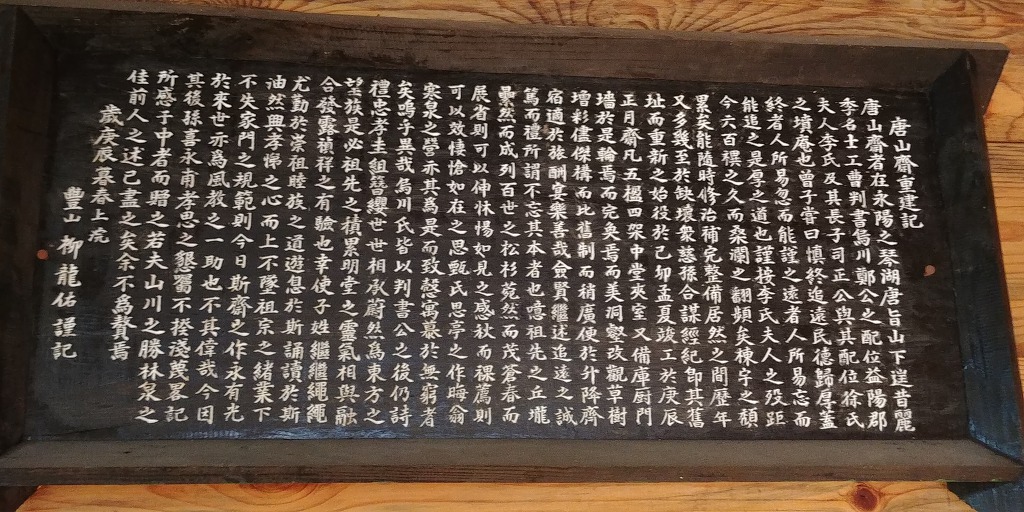 唐山齋重建記
唐山齋者在永陽之琴湖唐旨山下逞昔麗
季名士工曹判書烏川鄭公之配位益陽郡
夫人李氏及其長子司正公與其配位徐氏
之墳庵也曾子嘗曰慎終追遠民德歸厚蓋
終者人所易忽而能謹之遠者人所易忘而
能追之是厚之道也謹按李氏夫人之歿距
今六百禩之人而桑瀾之翻頻矣棟宇之頹
累矣能隨時修治補完整備居然之間歷年
又多幾至於缺壞衆慈孫合謀經紀即其舊
址而重新之始役於己卯孟夏竣工於庚辰
正月齋凡五楹四架中堂夾室又備庫廚門
墻於是輪焉而完奐焉而美洞壑改觀草樹
增彩儘傑構而比舊制而稍廣便於升降齊
宿適於旅酬宴樂善哉僉賢繼述追遠之誠
篤而禮所謂不忘其本者也噫祖先之丘壠
纍然而成列百世之松杉菀然而茂蒼春而
展省則可以伸怵惕如見之感秋而祼薦則
可以效悽愴如在之思甄氏思亭之作晦翁
寒泉之營亦其爲是而致慤寓慕於無窮者
矣嗚乎異哉烏川氏皆以判書公之後仍詩
禮忠孝圭組簪纓世世相承蔚然爲東方之
望族是必祖先之積累明堂之靈氣相與融
合發露禎祥之有驗也幸使子姓繼繼繩繩
尤勤於崇祖睦族之道遊息於斯誦讀於斯
油然興孝悌之心而上不墜祖宗之緒業下
不失家門之規範則今日斯齋之作永有光
於來世亦爲風教之一助也不其偉哉今因
其後孫喜永甫孝思之懇䨥不揆淺蔑畧記
所感于中者而貽之若夫山川之勝林泉之
佳前人之述已盡之矣余不爲贅焉
歲庚辰暮春上浣
豊山 柳龍佑 謹記